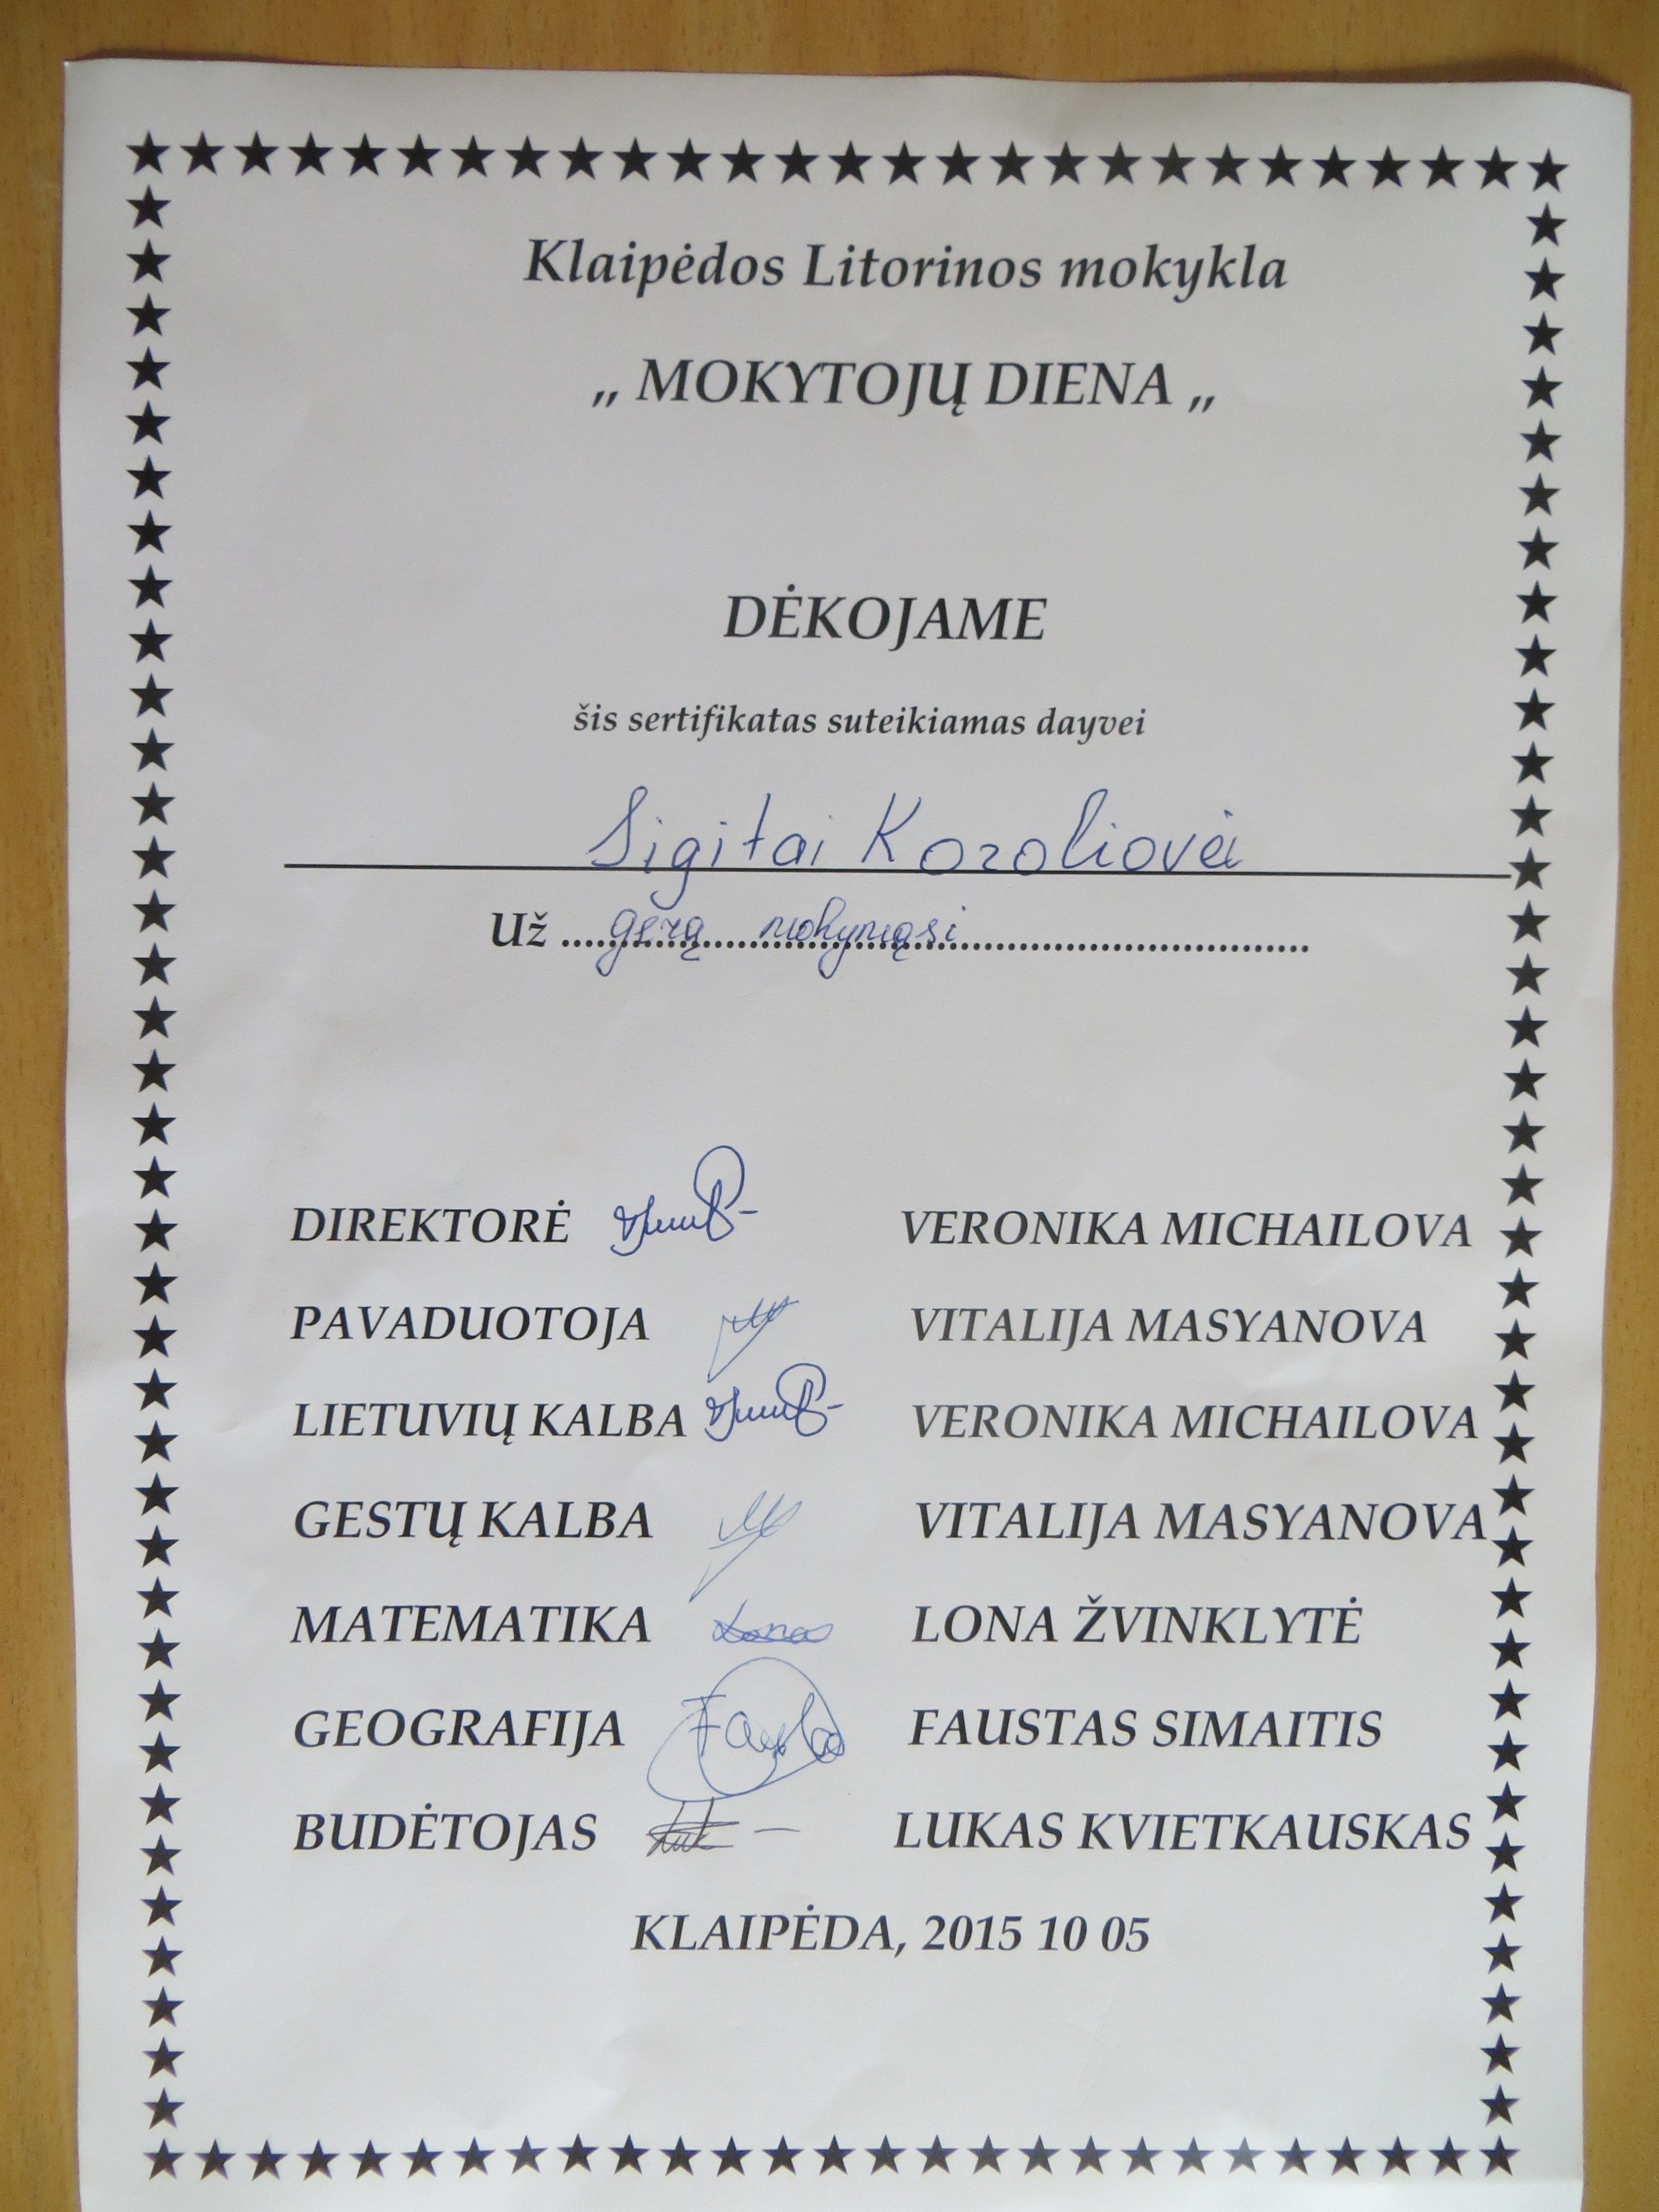 Klaipėdos Litorinos mokykla
„ MOKYTOJŲ DIENA „
DĖKOJAME
šis sertifikatas suteikiamas dayvei
Sigitai Kozoliovai
Už ..... gerą mokymąsi .....
DIREKTORĖ VERONIKA MICHAILOVA
PAVADUOTOJA VITALIJA MASYANOVA
LIETUVIŲ KALBA VERONIKA MICHAILOVA
GESTŲ KALBA VITALIJA MASYANOVA
MATEMATIKA Lonas LONA ŽVINKLYTĖ
GEOGRAFIJA FAUSTAS SIMAITIS
BUDĖTOJAS LUKAS KVIETKAUSKAS
KLAIPĖDA, 2015 10 05